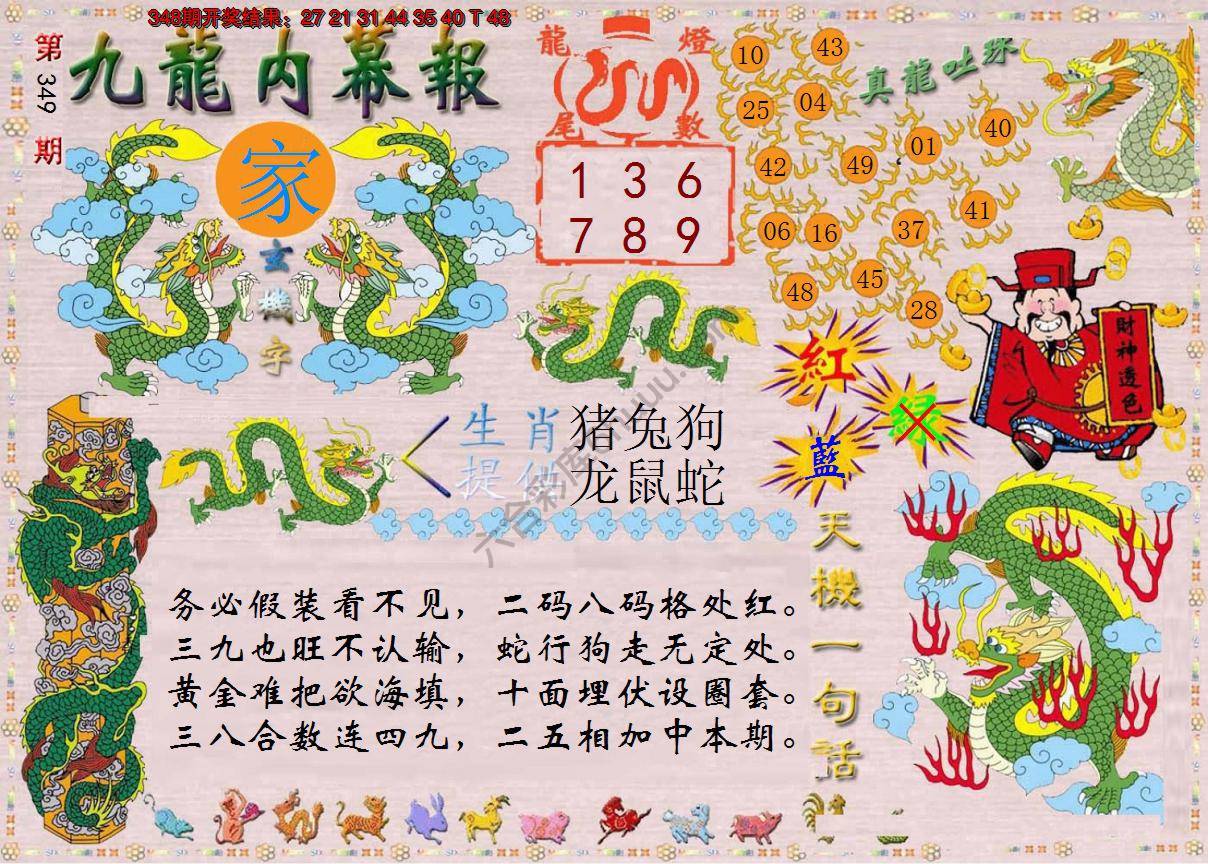 348期开奖结果：27 21 31 44 35 40 T 48
第349期
九龍内幕報
家
玄機字
龍燈
尾數
1 3 6
7 8 9
真龍吐珠
10
43
25
04
42
49
01
40
06
16
37
41
48
45
28
財神透色
紅
綠
藍
生肖
提供
猪兔狗
龙鼠蛇
天機一句話
务必假装看不见，二码八码格处红。
三九也旺不认输，蛇行狗走无定处。
黄金难把欲海填，十面埋伏设圈套。
三八合数连四九，二五相加中本期。